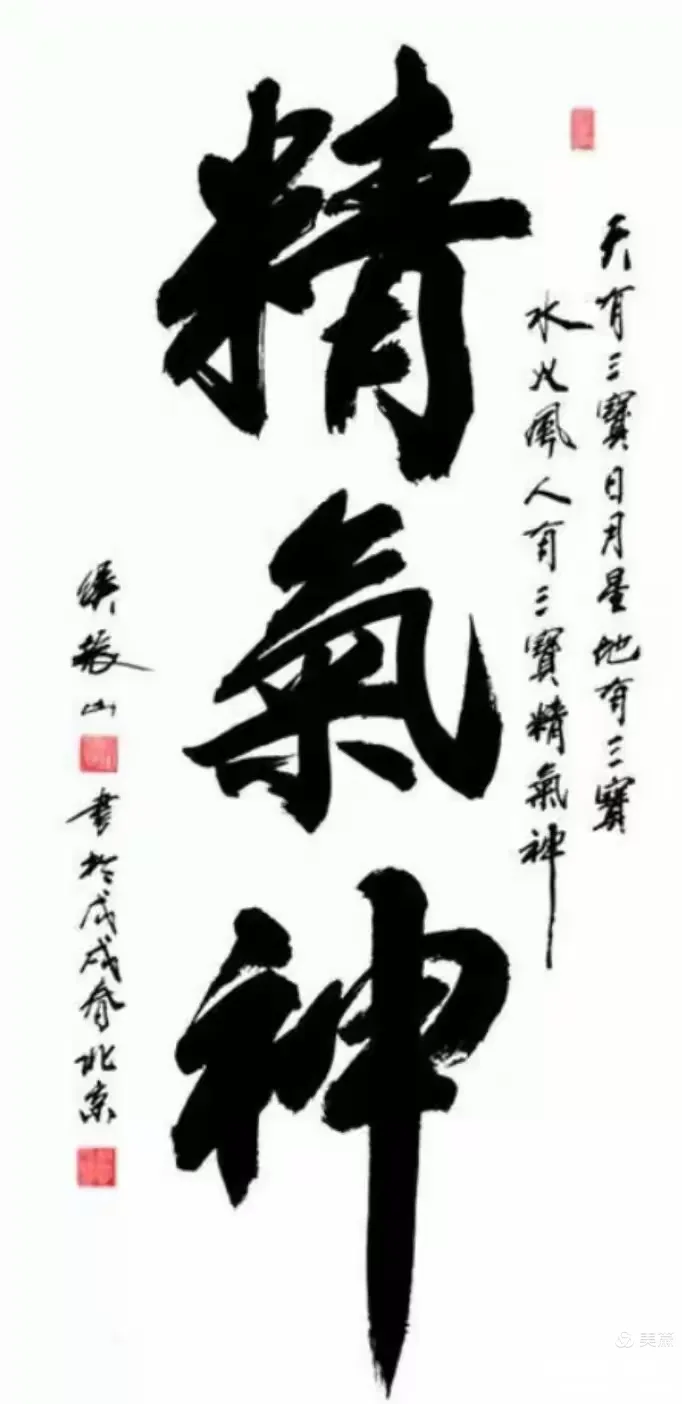 精氣神
天有三寶日月星地有三寶
水火風人有三寶精氣神
振山
書於戊戌春北京
美篇